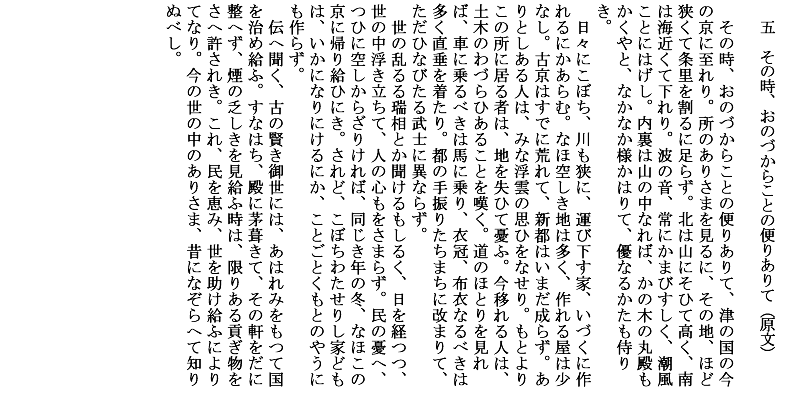 五　その時、おのづからことの便りありて（原文）
　その時、おのづからことの便りありて、津の国の今
の京に至れり。所のありさまを見るに、その地、ほど
狭くて条里を割るに足らず。北は山にそひて高く、南
は海近くて下れり。波の音、常にかまびすしく、潮風
ことにはげし。内裏は山の中なれば、かの木の丸殿も
かくやと、なかなか様かはりて、優なるかたも侍り
き。
　日々にこぼち、川も狭に、運び下す家、いづくに作
れるにかあらむ。なほ空しき地は多く、作れる屋は少
なし。古京はすでに荒れて、新都はいまだ成らず。あ
りとしある人は、みな浮雲の思ひをなせり。もとより
この所に居る者は、地を失ひて憂ふ。今移れる人は、
土木のわづらひあることを嘆く。道のほとりを見れ
ば、車に乗るべきは馬に乗り、衣冠、布衣なるべきは
多く直垂を着たり。都の手振りたちまちに改まりて、
ただひなびたる武士に異ならず。
　世の乱るる瑞相とか聞けるもしるく、日を経つつ、
世の中浮き立ちて、人の心もをさまらず。民の憂へ、
つひに空しからざりければ、同じき年の冬、なほこの
京に帰り給ひにき。されど、こぼちわたせりし家ども
は、いかになりにけるにか、ことごとくもとのやうに
も作らず。
　伝へ聞く、古の賢き御世には、あはれみをもつて国
を治め給ふ。すなはち、殿に茅葺きて、その軒をだに
整へず、煙の乏しきを見給ふ時は、限りある貢ぎ物を
さへ許されき。これ、民を恵み、世を助け給ふにより
てなり。今の世の中のありさま、昔になぞらへて知り
ぬべし。